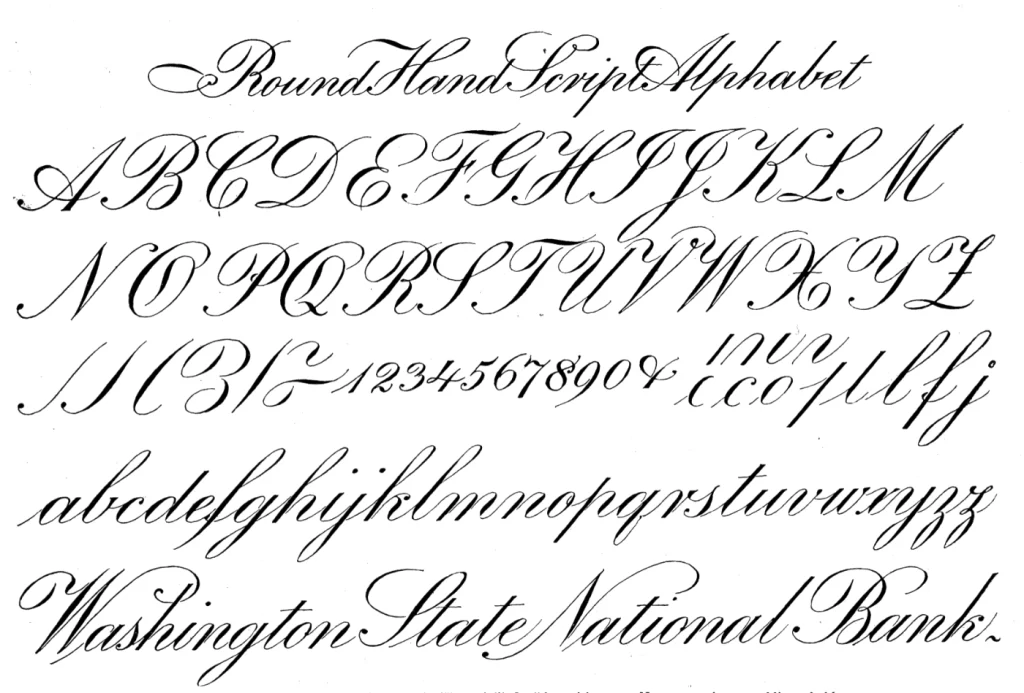 Round Hand Script Alphabet
A B C D E F G H I J K L M
N O P Q R S T U V W X Y Z
1 2 3 4 5 6 7 8 9 0 &
a b c d e f g h i j k l m n o p q r s t u v w x y z z
Washington State National Bank.